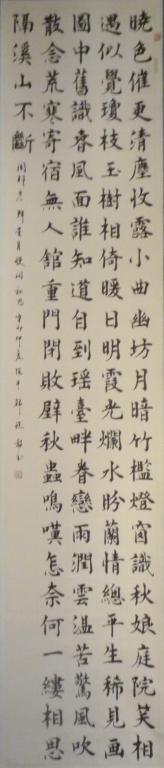 曉色催更清塵收露小曲幽坊月暗竹檻燈窗識秋娘庭院笑相
遇似覺瓊枝玉樹相倚暖日明霞光爛水盼蘭情總平生稀見画
圖中舊識春風面誰知道自到瑤臺畔眷戀雨潤雲温苦驚風吹
散念荒寒寄宿無人館重門閉敗壁秋蟲鳴嘆怎奈何一縷相思
隔溪山不斷
周邦彦拜星月慢詞秋思